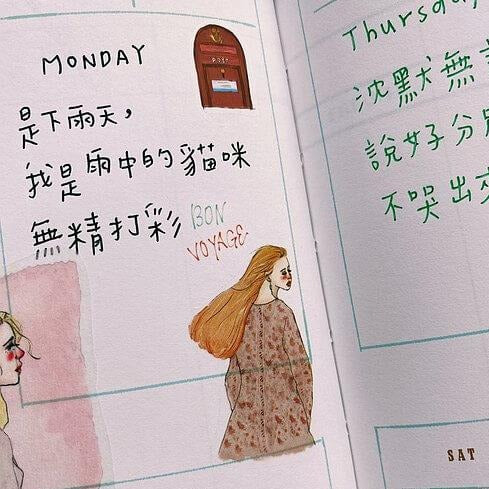 MONDAY
POST
是下雨天，
我是雨中的貓咪
無精打彩
BON
VOYAGE
Thursday
沈默無
說好分
不哭出
SAT